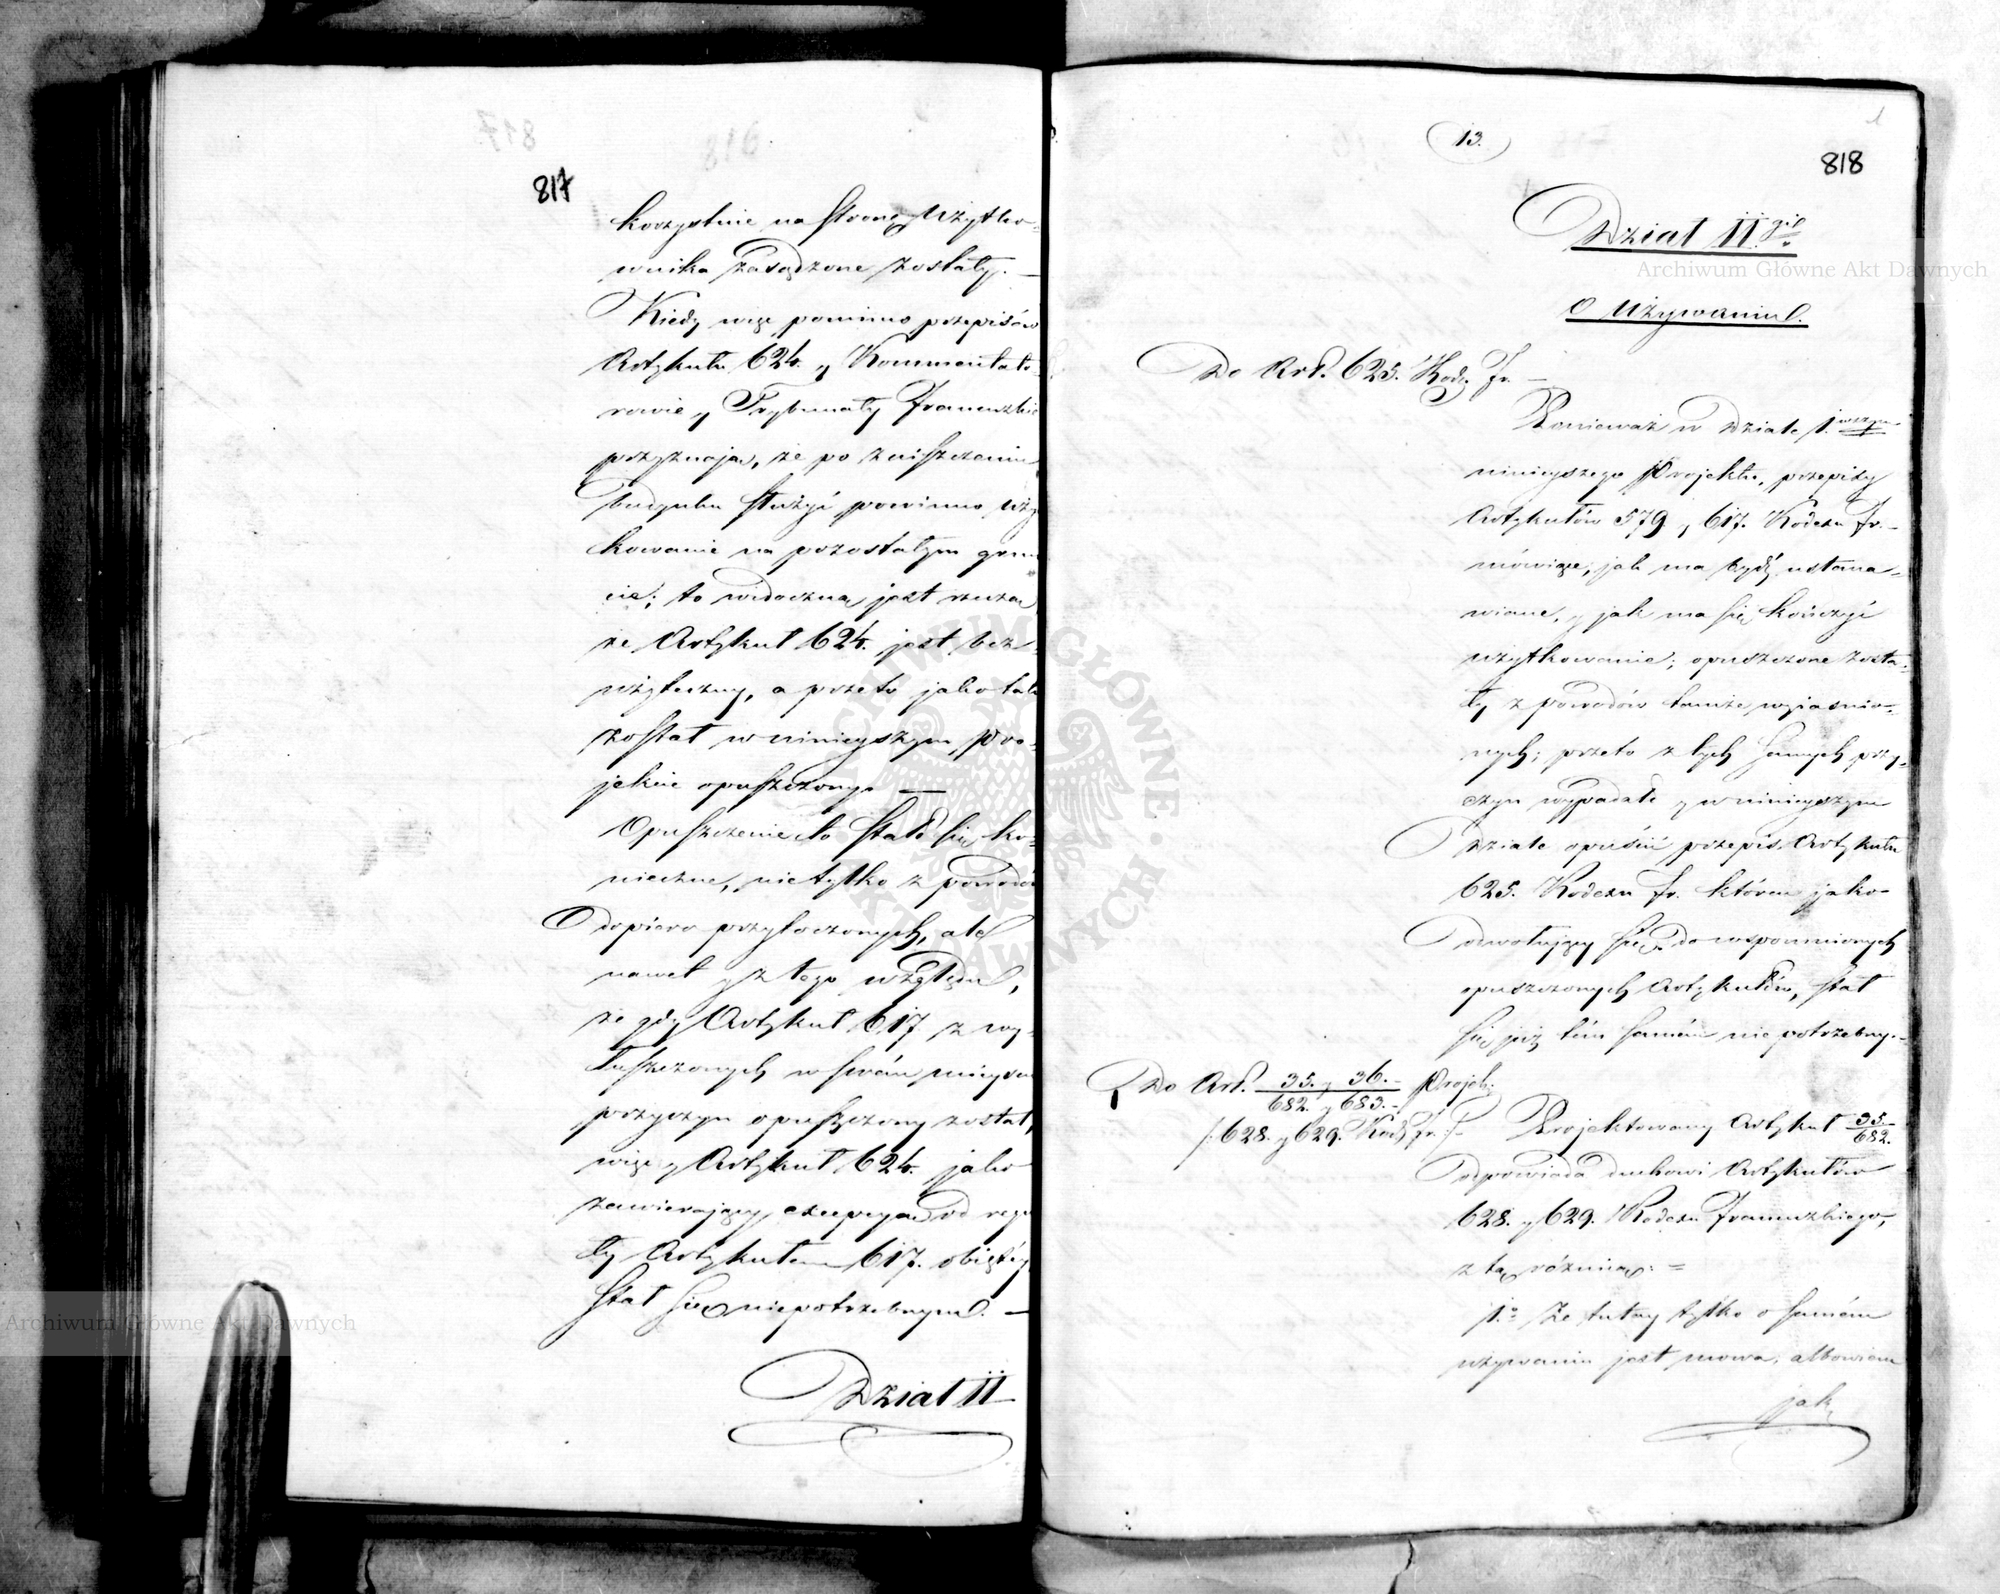 817
korzystnie na stronę Użytko-
wnika zasądzone zostały. —
Kiedy więc pomimo przepisów
Artykułu 624. y Kommentato-
rowie y Trybunały Francuzkie
przyznają, że po zniszczeniu
budynku służyć powinno uży
kowanie na pozostałym grun
cie; to widoczną jest rzeczą
że Artykuł 624. jest bez-
użyteczny, a przeto jako taki
został w ninieyszym Pro-
jekcie opuszczony. —
Opuszczenie to stało się ko-
nieczne, nietylko z powodów
dopiero przytoczonych, ale
nawet y z tego względu,
że gdy Artykuł 617 z wy-
łuszczonych w swém mieyscu
przyczyn opuszczony został,
więc y Artykuł 624. jako
zawierający excepcyą od regu
ły Artykułem 617. objętéy
stał się niepotrzebnym. —
Dział II
13.
818
Dział II gi
O Używaniu.
Do Art. 625. Kod. Fr. —
Ponieważ w Dziale 1. wszym
ninieyszego Projektu, przepisy
Artykułów 579 y 617. Kodexu Fr. —
mówiące, jak ma bydź ustana-
wiane, y jak ma się kończyć
użytkowanie; opuszczone zosta-
ły z powodów tamże wyjaśnio-
nych; przeto z tych samych przy-
czyn wypadało y w ninieyszym
Dziale opuścić przepis Artykułu
625. Kodexu Fr. który jako
odwołujący się do wspomnionych
opuszczonych Artykułów, stał
się już tém samém niepotrzebny. —
Do Art. 35. y 36. Projek.
682. y 683.
/: 628. y 629. Kod. Fr. :/ —
Projektowany Artykuł 35.
682.
odpowiada duchowi Artykułów
628. y 629. Kodexu Francuzkiego,
z tą różnicą: =
1.o Że tutay tylko o samém
używaniu jest mowa, albowiem
jak
Archiwum Główne Akt Dawnych
Archiwum Główne Akt Dawnych
ARCHIWUM GŁÓWNE
AKT DAWNYCH